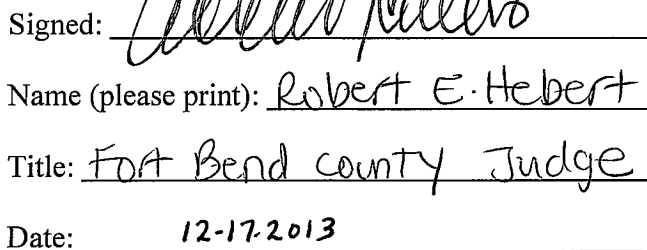 Signed:
Name (please print): Robert E. Hebert
Title: Fort Bend county Judge
Date: 12-17-2013